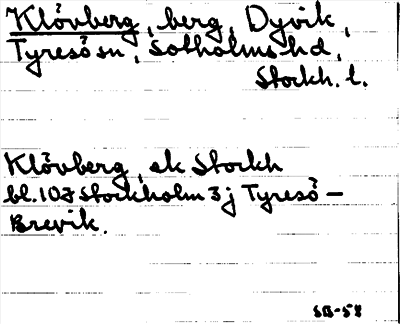 Klövberg, berg, Dyvik,
Tyresö sn, Sotholms hd,
Stockh. l.
Klövberg, ek Stockh
bl. 107 Stockholm 3 j Tyresö –
Brevik.
SB-58